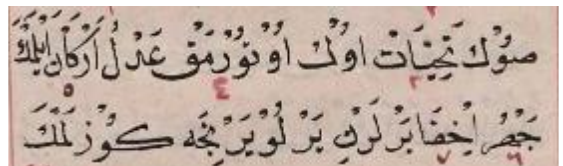 صوُڭ تَحِيَّات اوُڭ اوُتوُرْمَقْ عَدْلُ اَرْكَانْ اَيْلَمَكْ
جَهْرُ اِخْفَا يَرْلَرِڭ يَرْ لُو يَرِنْجَه كُوزْلَمَكْ